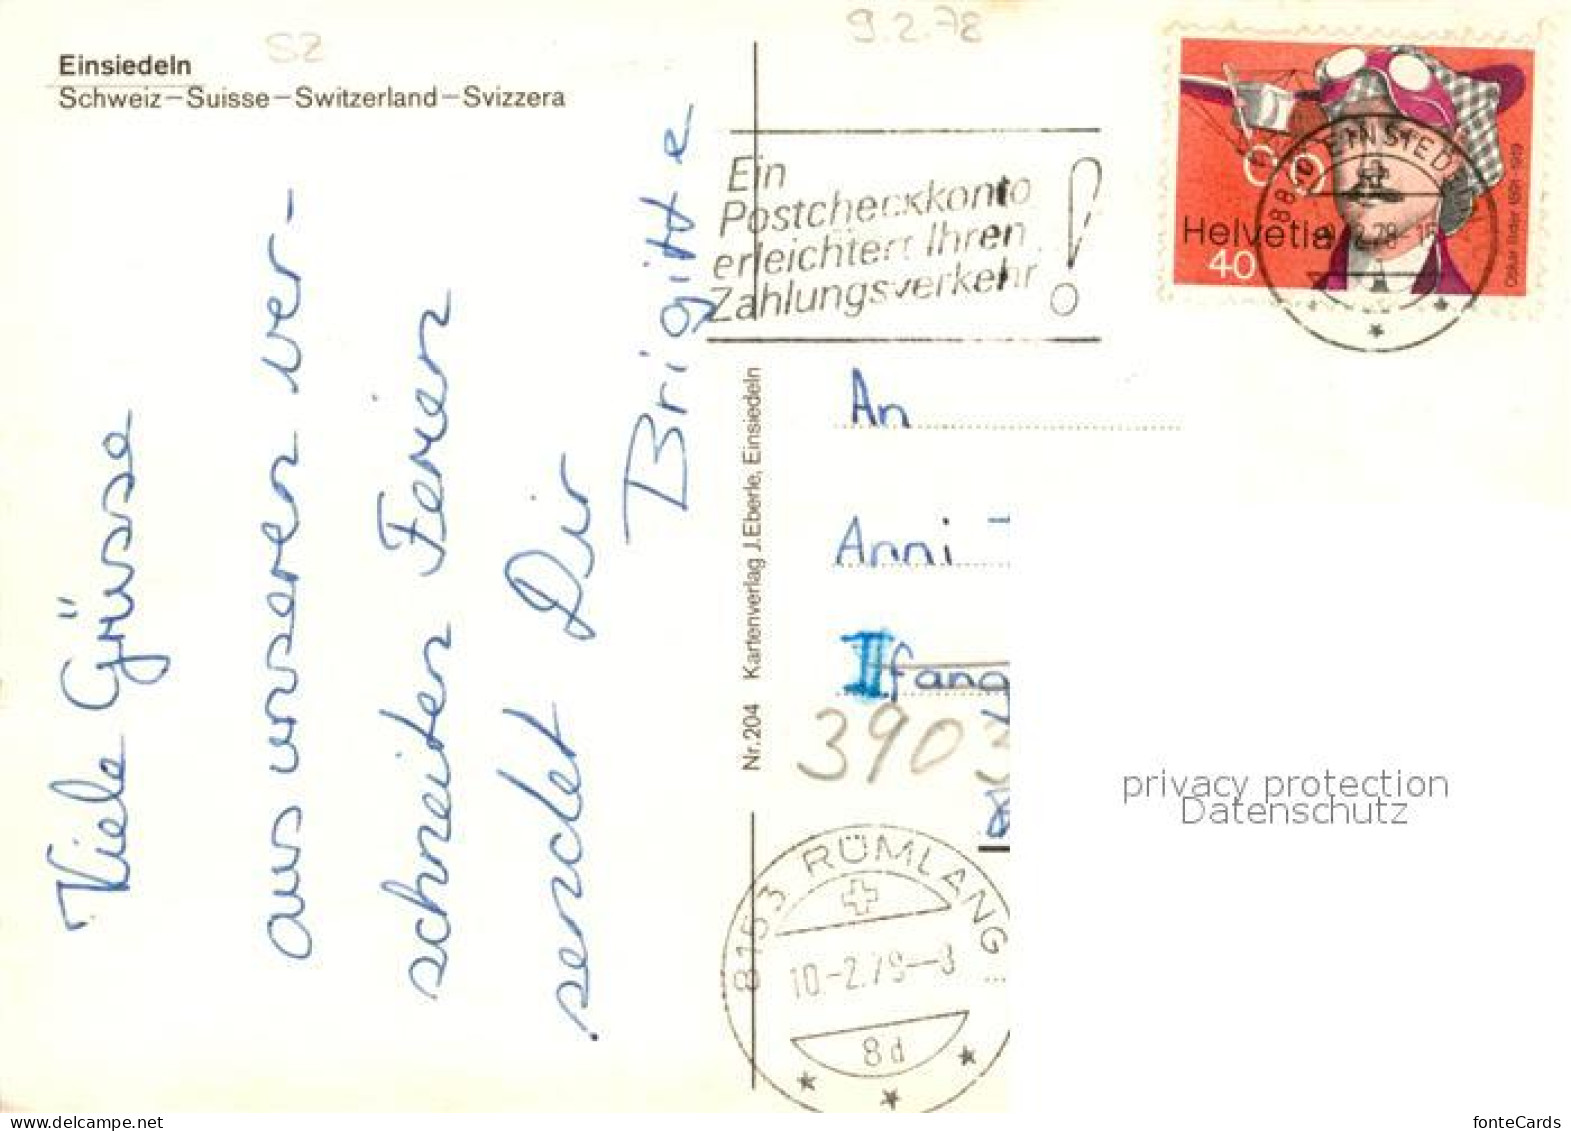 Einsiedeln
Schweiz–Suisse–Switzerland–Svizzera
SZ
9.2.78
Viele Grüsse
aus unseren ver-
schneiten Ferien
sendet Dir
Brigitte
Nr.204 Kartenverlag J.Eberle, Einsiedeln
Ein
Postcheckkonto
erleichtert Ihren
Zahlungsverkehr
!
Helvetia
40
Oskar Bider 1891-1919
8840 EINSIEDE
An
Anni
Ifang
3903
8153 RÜMLANG
8d
privacy protection
Datenschutz
www.delcampe.net
fonteCards